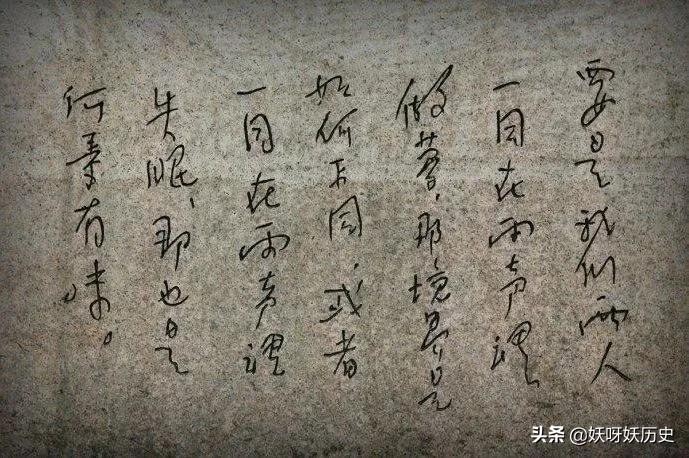 要是我们两人
一同在雨声裡
做梦，那境界是
如何不同，或者
一同在雨声裡
失眠，那也是
何等有味。
头条 @妖呀妖历史